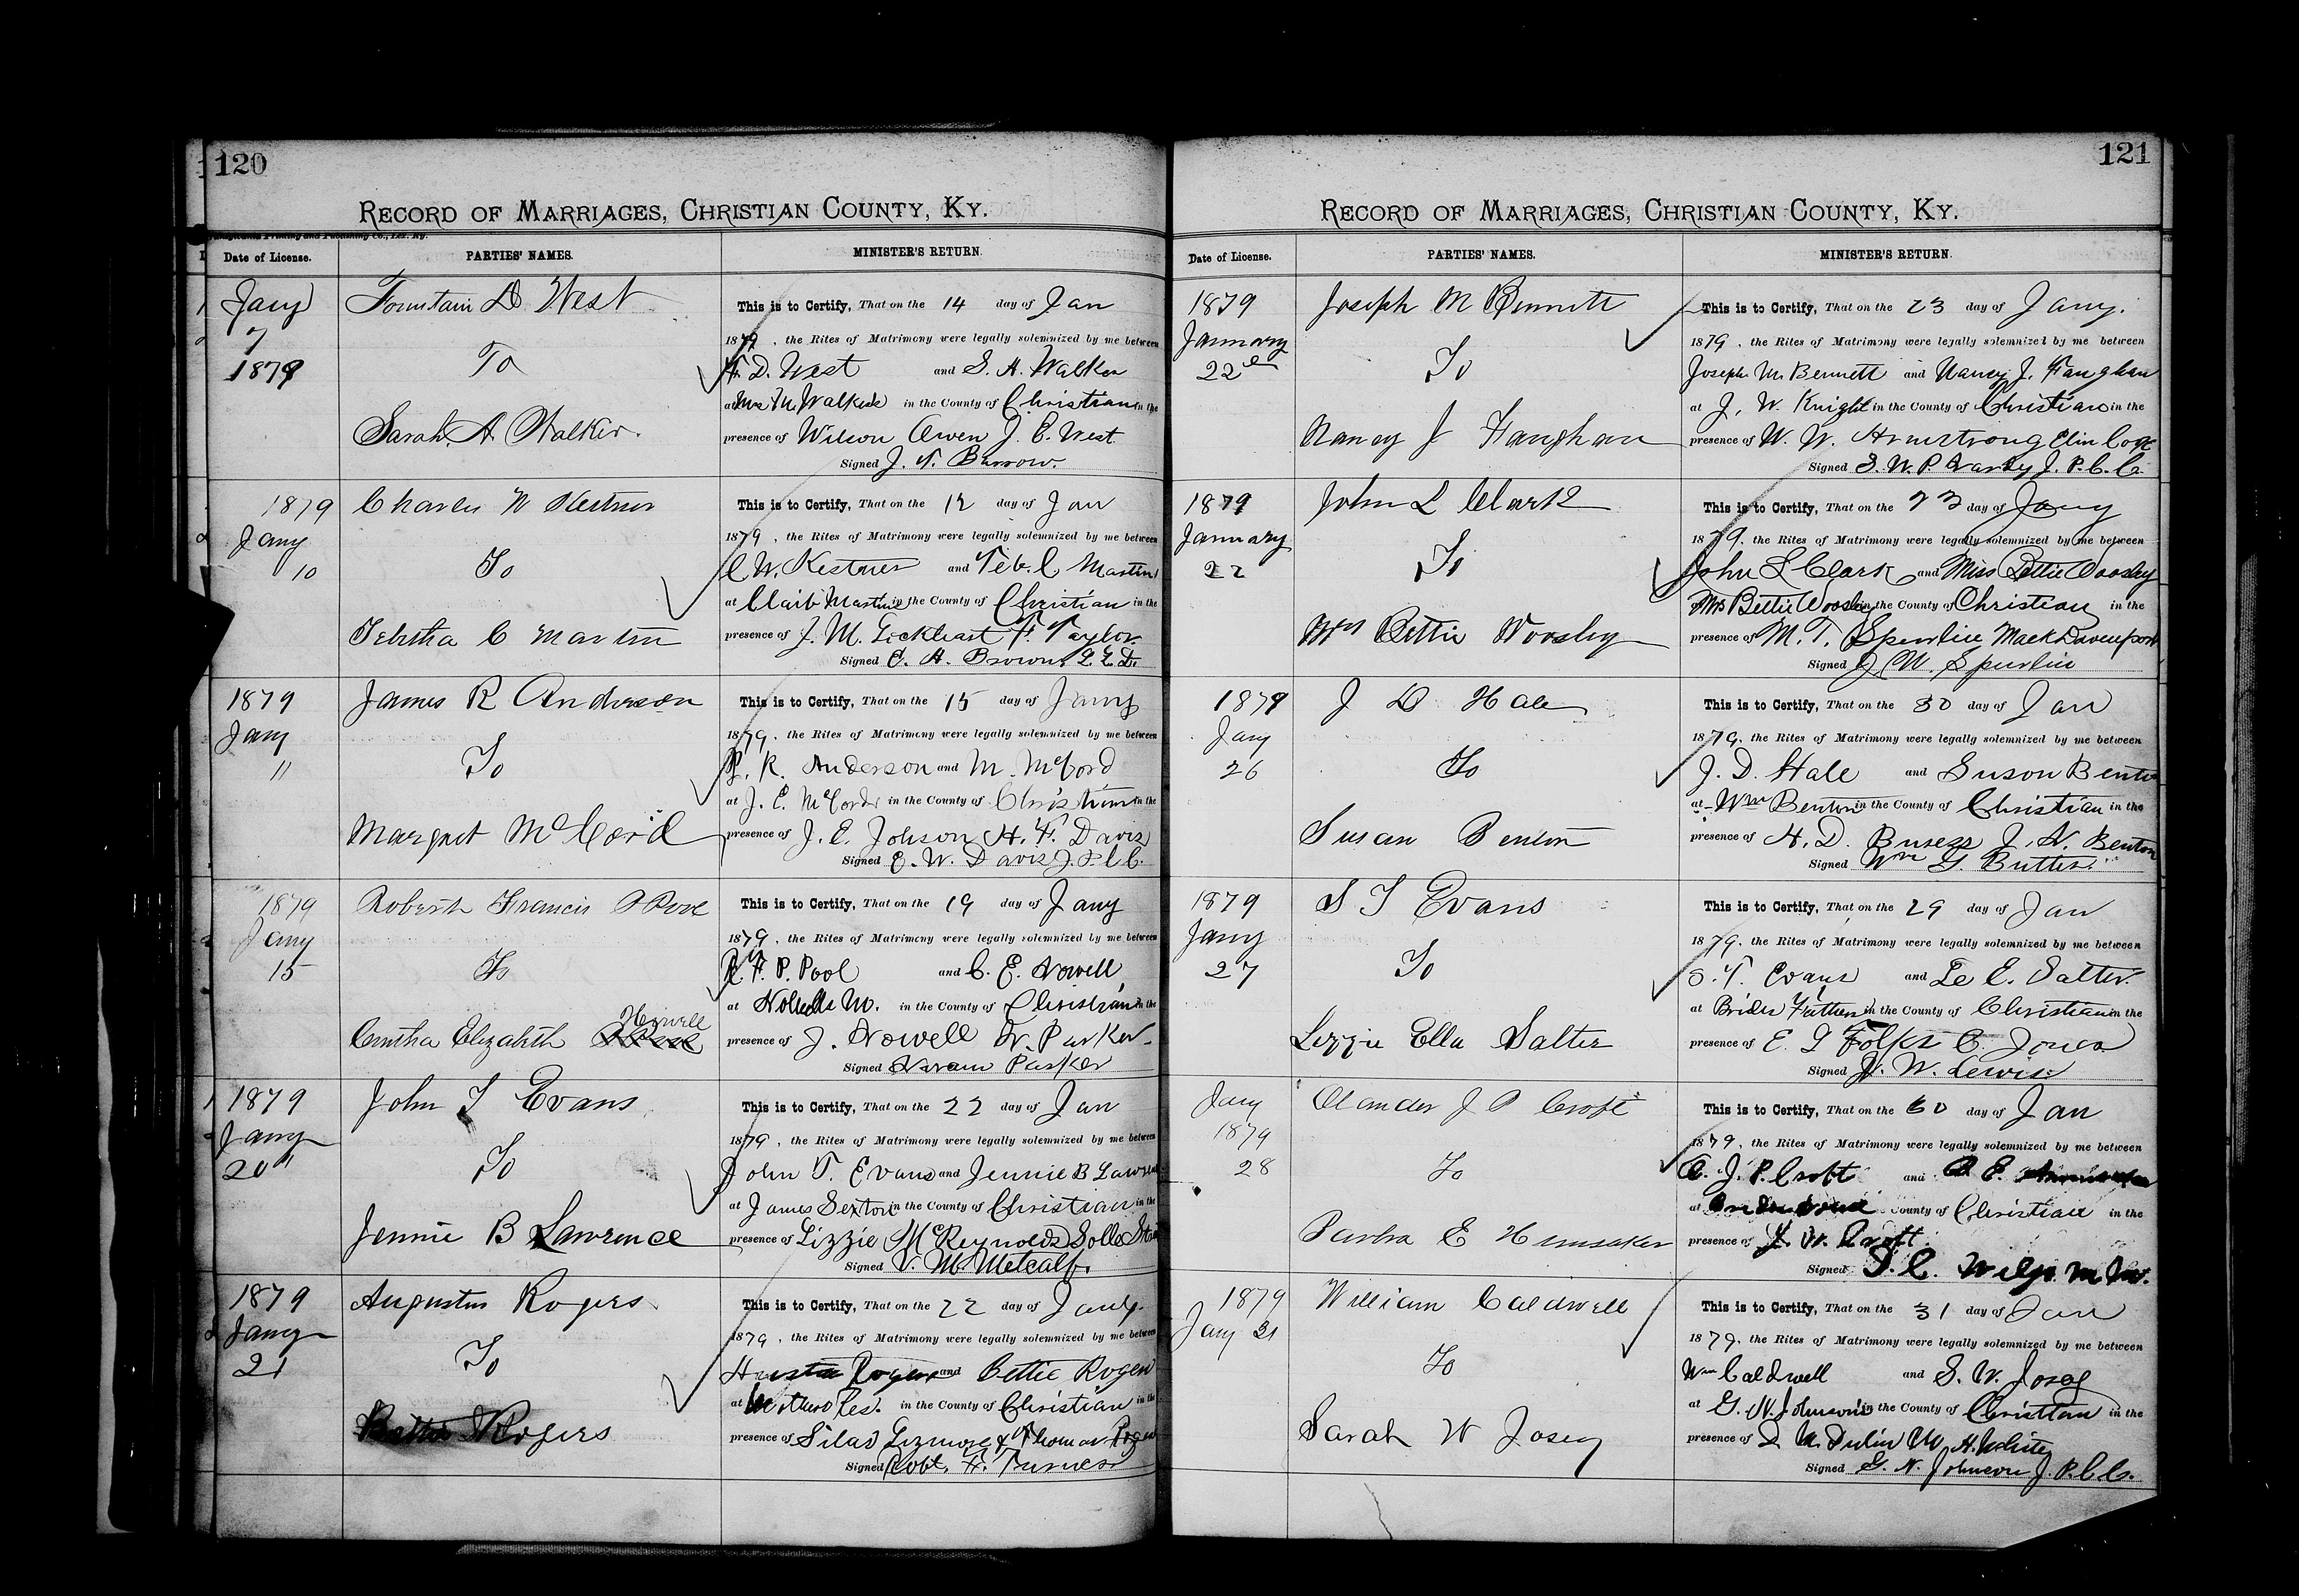 120
RECORD OF MARRIAGES, CHRISTIAN COUNTY, KY.
Date of License.
PARTIES' NAMES.
MINISTER'S RETURN.
Jany
7
1879
Fountain D. West
To
Sarah. A. Walker.
This is to Certify, That on the 14 day of Jan
1879, the Rites of Matrimony were legally solemnized by me between
F. D. West and S. A. Walker
at Mrs M. Walkers in the County of Christian in the
presence of Wilson Owen J. E. West
Signed J. T. Barrow.
1879
Jany
10
Charles W Kestner
To
Tebitha C Martin
This is to Certify, That on the 12 day of Jan
1879, the Rites of Matrimony were legally solemnized by me between
C W. Kestner and Teb. C Martin
at Claib Martins in the County of Christian in the
presence of J. M. Lockhart F. Taylor
Signed C. A. Brown,
1879
Jany
11
James R Anderson
To
Margret McCord
This is to Certify, That on the 15 day of Jany
1879, the Rites of Matrimony were legally solemnized by me between
J. R. Anderson and M. McCord
at J. E. McCords in the County of Christian in the
presence of J. E. Johson H. F. Davis
Signed E. W. Davis J. P. C. C.
1879
Jany
15
Robert Francis P Pool
To
Cintha Elizabeth Nowell
This is to Certify, That on the 19 day of Jany
1879, the Rites of Matrimony were legally solemnized by me between
R. F. P. Pool and C. E. Nowell
at in the County of Christian in the
presence of J. Nowell W. Parker
Signed Parker
1879
Jany
20th
John T Evans
To
Jennie B Lawrence
This is to Certify, That on the 22 day of Jan
1879, the Rites of Matrimony were legally solemnized by me between
John T. Evans and Jennie B Lawrence
at James Sexton in the County of Christian in the
presence of Lizzie McReynolds
Signed V. M Metcalf.
1879
Jany
21
Augustus Rogers
To
Rogers
This is to Certify, That on the 22 day of Jany.
1879, the Rites of Matrimony were legally solemnized by me between
Rogers and Bettie Rogers
at Mothers Res. in the County of Christian in the
presence of Silas Lizmore & Thomas Rogers
Signed Robt. F. Turner
121
RECORD OF MARRIAGES, CHRISTIAN COUNTY, KY.
Date of License.
PARTIES' NAMES.
MINISTER'S RETURN.
1879
January
22d
Joseph M Bennett
To
Nancy J Faughan
This is to Certify, That on the 23 day of Jany.
1879, the Rites of Matrimony were legally solemnized by me between
Joseph M. Bennett and Nancy J. Faughan
at J. W. Knight in the County of Christian in the
presence of W. W. Armstrong Elin Cope
Signed S. W. P J. P. C. C.
1879
January
22
John L Clark
To
Mrs Bettie Woosley
This is to Certify, That on the 23 day of Jany
1879, the Rites of Matrimony were legally solemnized by me between
John L Clark and Miss Bettie Woosley
Mrs Bettie Woosley in the County of Christian in the
presence of M. T. Spurlin Mack Davenport
Signed J. W. Spurlin
1879
Jany
26
J D Hale
To
Susan Benton
This is to Certify, That on the 30 day of Jan
1879, the Rites of Matrimony were legally solemnized by me between
J. D. Hale and Suson Benton
at Wm Benton in the County of Christian in the
presence of H. D. J. N. Benton
Signed Wm G. Butler.
1879
Jany
27
S T Evans
To
Lizzie Ella Salter
This is to Certify, That on the 29 day of Jan
1879, the Rites of Matrimony were legally solemnized by me between
S. T. Evans and Le E. Salter.
at Brides Fathers in the County of Christian in the
presence of E. G Folks C. Jones
Signed J. W. Lewis
Jany
1879
28
Olander J P Croft
To
Barbra E Hunsaker
This is to Certify, That on the 30 day of Jan
1879, the Rites of Matrimony were legally solemnized by me between
O. J. P. Croft and B E.
at County of Christian in the
presence of J. W. Croft
Signed
1879
Jany 31
William Caldwell
To
Sarah W Josey
This is to Certify, That on the 31 day of Jan
1879, the Rites of Matrimony were legally solemnized by me between
Wm Caldwell and S. W. Josey
at G. N. Johnson's in the County of Christian in the
presence of M. Dulin W. H. White
Signed G. N. Johnson J. P. C. C.